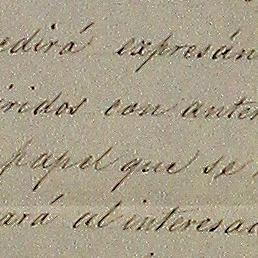 edirá expresán
ridos con anter
papel que se
ará al interesad